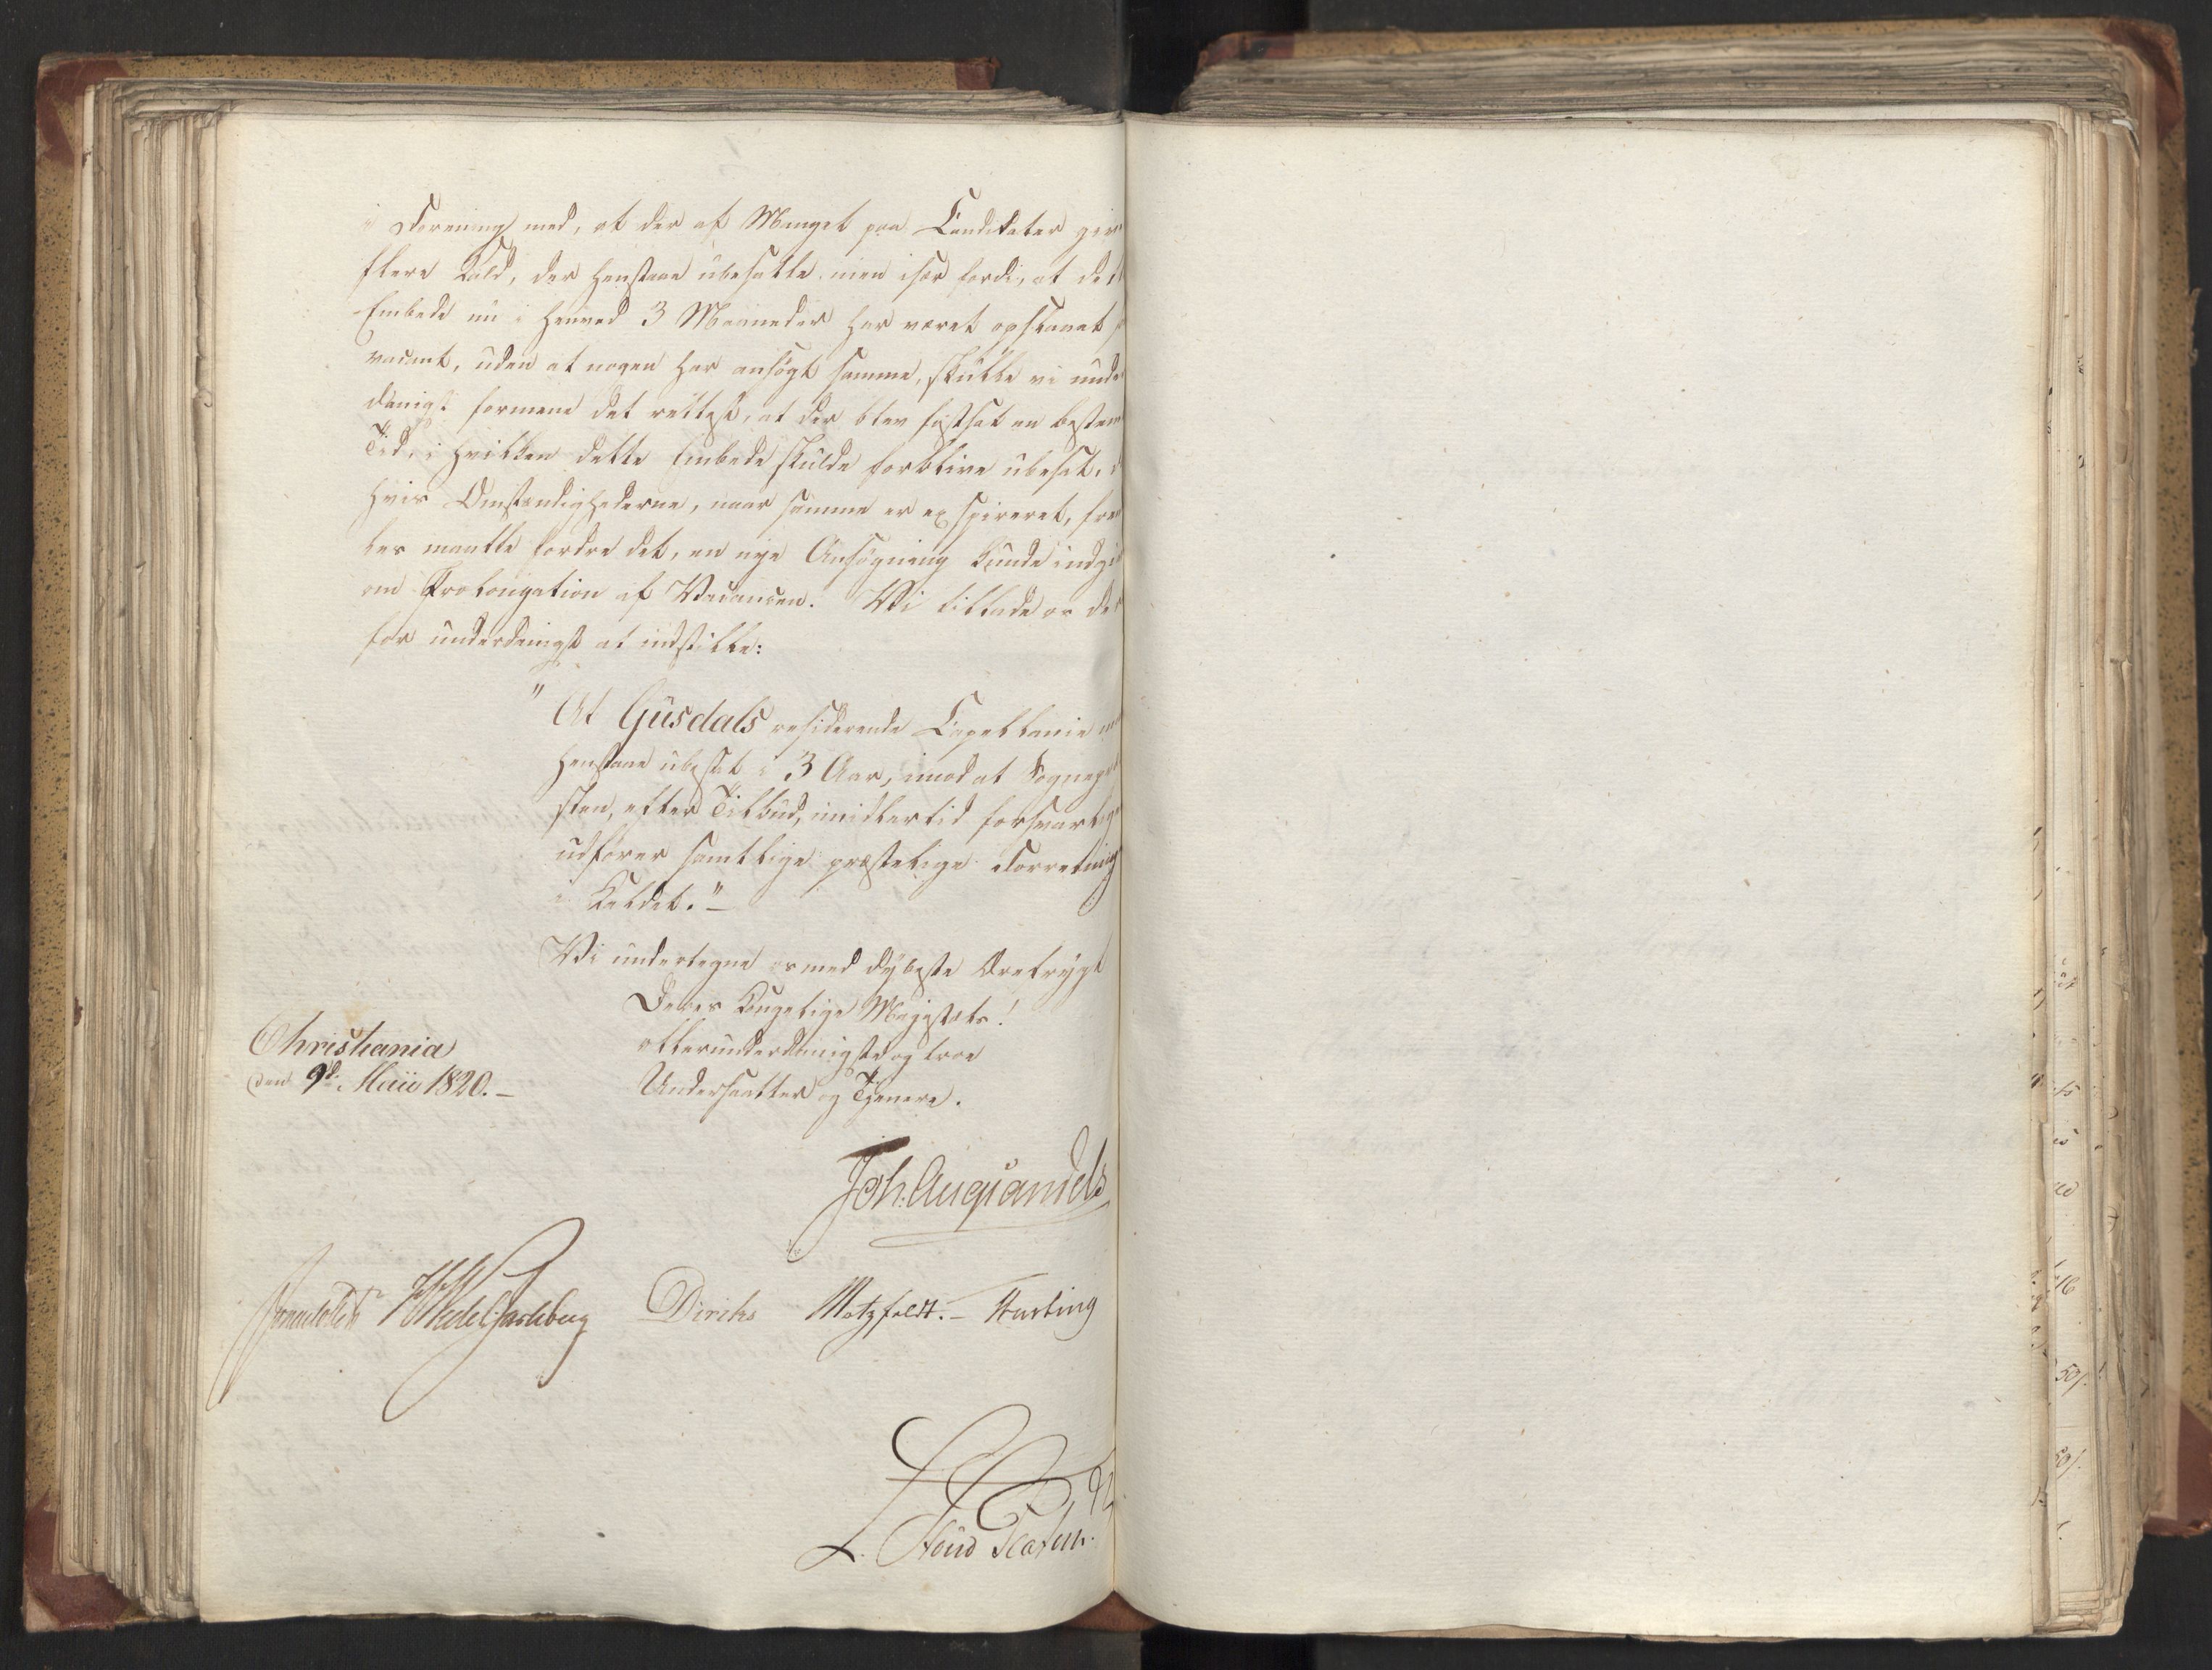 i Forening med, at der af Mangel paa Candidater
flere Kald, der henstaae ubesatte, men især fordi, at
Embede nu i henved 3 Maaneder har været opslaaet
vacant, uden at nogen har ansøgt samme, skulle vi under
danigst formene det rettest, at der blev fastsat en bestem
Tid, i hvilken dette Embede skulde forblive ubesat,
hvis Omstændighederne, naar samme er expireret, frem
les maatte fordre det, en nye Ansøgning kunde
om Prolongation af Vacancen. Vi tillade os der
for underdanigst at indstille:
"At Gusdals residerende Capellanie
henstaae ubesat i 3 Aar, imod at Sognepræ
sten, efter Tilbud, imidlertid forsvarlig
udfører samtlige præstelige Forretning
i Kaldet."–
Vi undertegne os med dybeste Ærefrygt
Deres Kongelige Majestæts!
allerunderdanigste og troe
Undersaatter og Tjenere.
Christiania
den 9d. Maii 1820.–
Joh. Aug. Sandels
Sommerhielm HWedel Jarlsberg Diriks Motzfeldt.– Harting